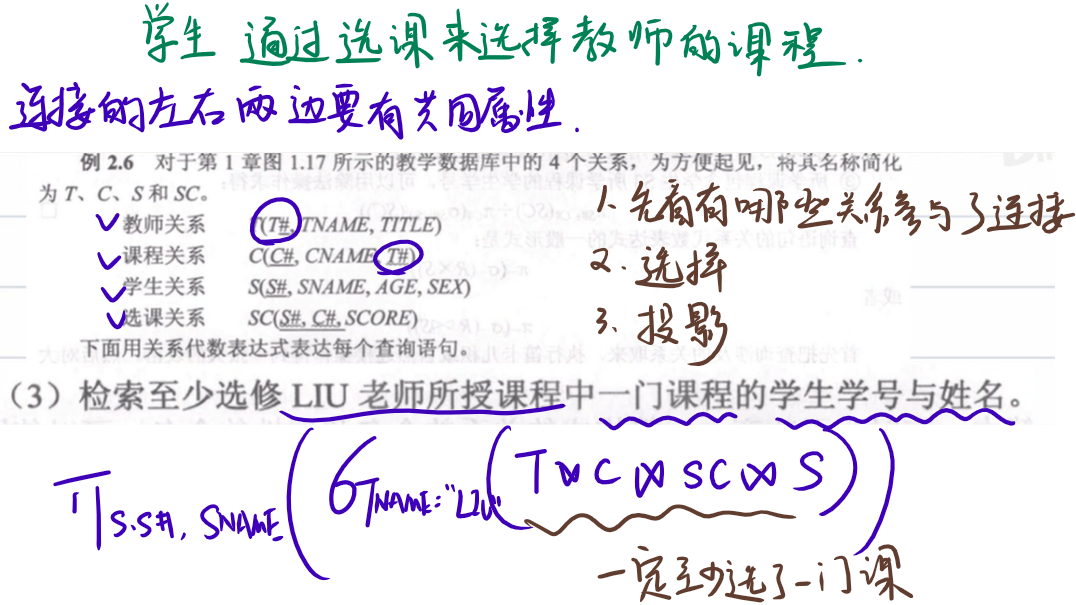 学生 通过选课来选择教师的课程.
连接的左右两边要有共同属性.
例 2.6 对于第 1 章图 1.17 所示的教学数据库中的 4 个关系，为方便起见，将其名称简化
为 T、C、S 和 SC。
教师关系 T(T#, TNAME, TITLE)
课程关系 C(C#, CNAME, T#)
学生关系 S(S#, SNAME, AGE, SEX)
选课关系 SC(S#, C#, SCORE)
下面用关系代数表达式表达每个查询语句。
1. 先看有哪些关系参与了连接
2. 选择
3. 投影
（3）检索至少选修 LIU 老师所授课程中一门课程的学生学号与姓名。
π S.S#, SNAME (σ TNAME="LIU" (T⋈C⋈SC⋈S))
一定至少选了一门课